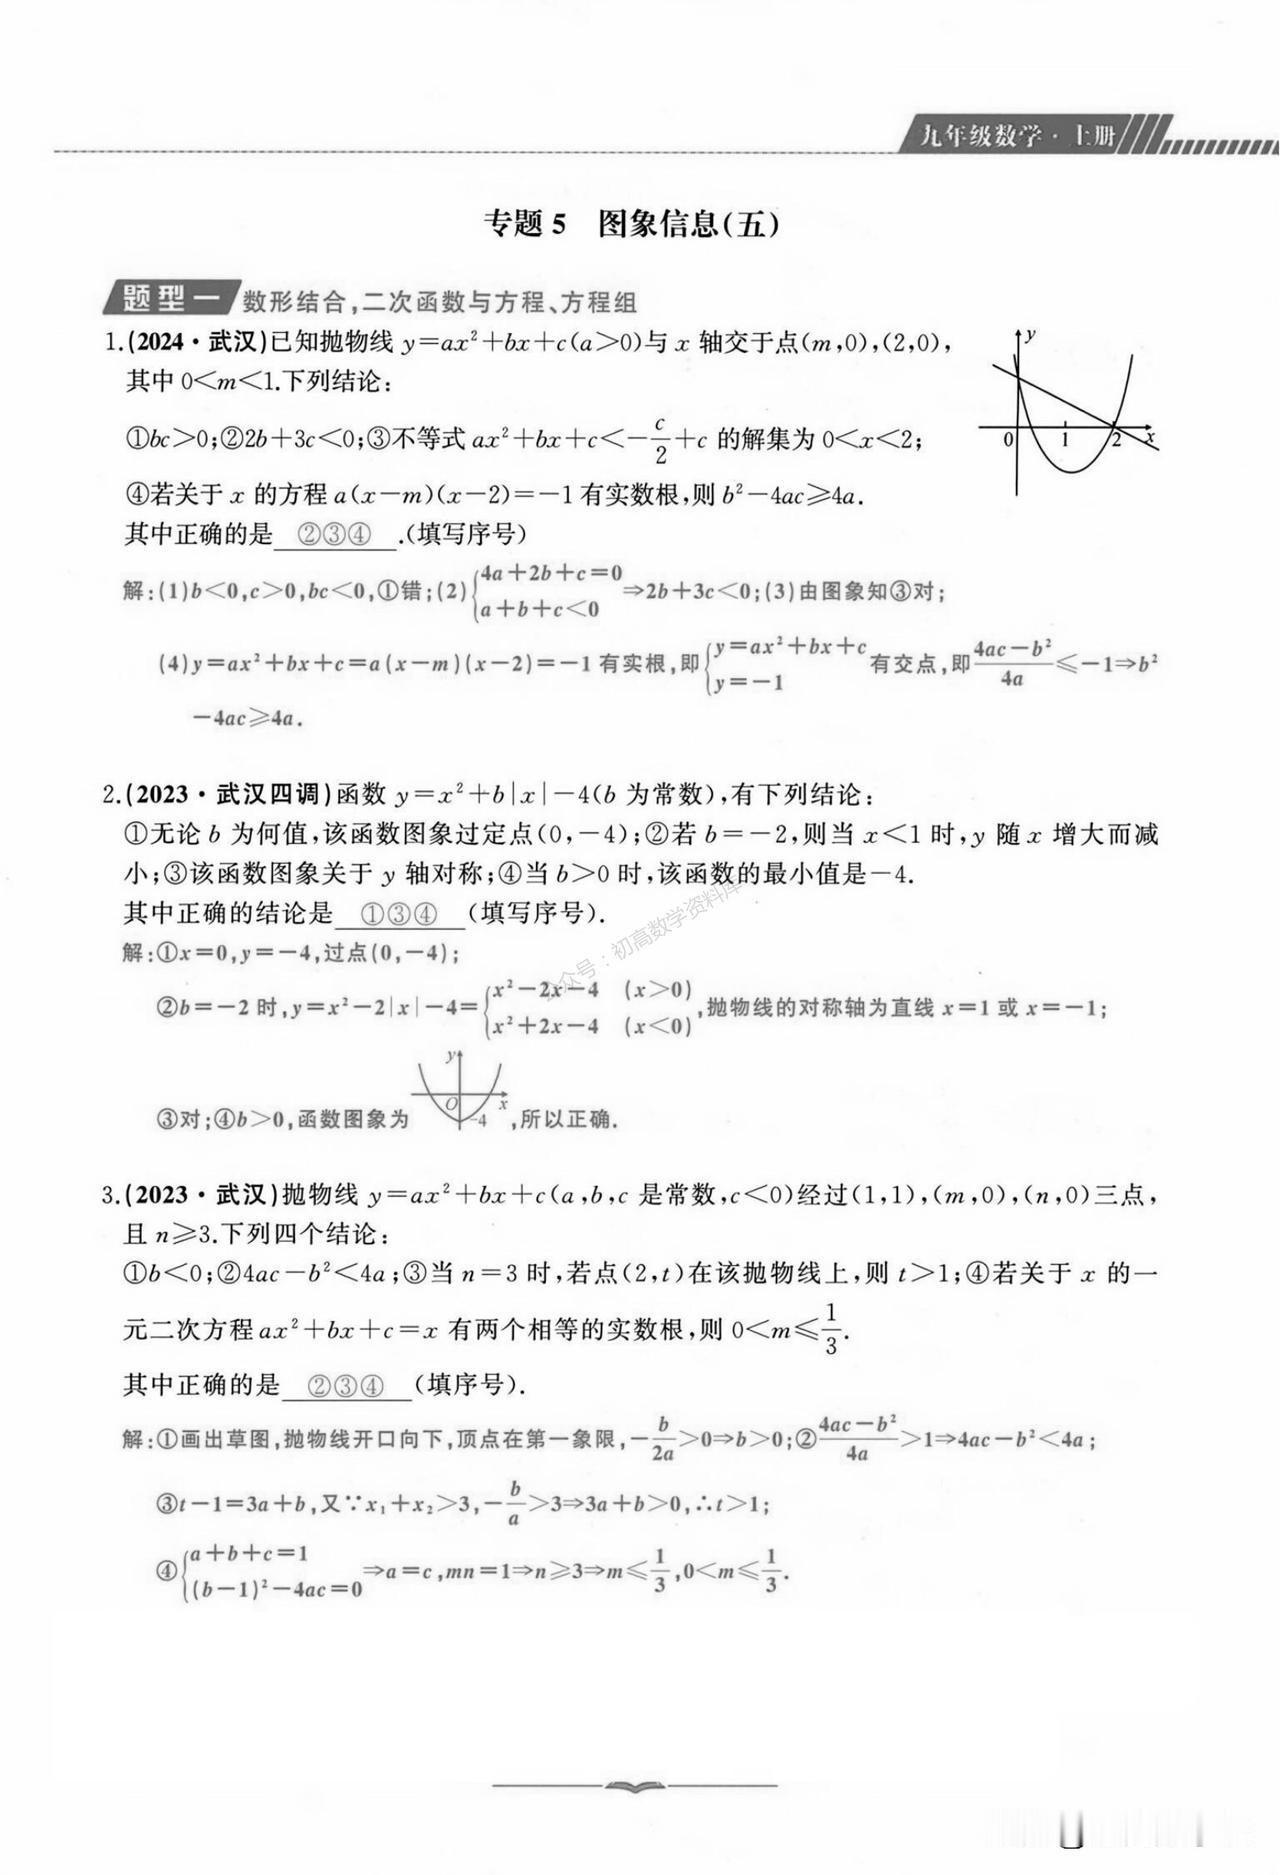 九年级数学·上册
专题5 图象信息(五)
题型一 数形结合,二次函数与方程、方程组
1.(2024·武汉)已知抛物线 y=ax²+bx+c(a>0)与 x 轴交于点(m,0),(2,0),
其中 0<m<1.下列结论:
①bc>0;②2b+3c<0;③不等式 ax²+bx+c<-c/2+c 的解集为 0<x<2;
④若关于 x 的方程 a(x-m)(x-2)=-1 有实数根,则 b²-4ac≥4a.
其中正确的是 ②③④ .(填写序号)
y
0 1 2 x
解:(1)b<0,c>0,bc<0,①错;(2){4a+2b+c=0 a+b+c<0 ⇒2b+3c<0;(3)由图象知③对;
(4)y=ax²+bx+c=a(x-m)(x-2)=-1 有实根,即{y=ax²+bx+c y=-1 有交点,即(4ac-b²)/4a≤-1⇒b²
-4ac≥4a.
2.(2023·武汉四调)函数 y=x²+b|x|-4(b 为常数),有下列结论:
①无论 b 为何值,该函数图象过定点(0,-4);②若 b=-2,则当 x<1 时,y 随 x 增大而减
小;③该函数图象关于 y 轴对称;④当 b>0 时,该函数的最小值是-4.
其中正确的结论是 ①③④ (填写序号).
公众号:初高数学资料库
解:①x=0,y=-4,过点(0,-4);
②b=-2 时,y=x²-2|x|-4={x²-2x-4 (x>0) x²+2x-4 (x<0),抛物线的对称轴为直线 x=1 或 x=-1;
y
O x
-4
③对;④b>0,函数图象为 ,所以正确.
3.(2023·武汉)抛物线 y=ax²+bx+c(a,b,c 是常数,c<0)经过(1,1),(m,0),(n,0)三点,
且 n≥3.下列四个结论:
①b<0;②4ac-b²<4a;③当 n=3 时,若点(2,t)在该抛物线上,则 t>1;④若关于 x 的一
元二次方程 ax²+bx+c=x 有两个相等的实数根,则 0<m≤1/3.
其中正确的是 ②③④ (填序号).
解:①画出草图,抛物线开口向下,顶点在第一象限,-b/2a>0⇒b>0;②(4ac-b²)/4a>1⇒4ac-b²<4a;
③t-1=3a+b,又∵x₁+x₂>3,-b/a>3⇒3a+b>0,∴t>1;
④{a+b+c=1 (b-1)²-4ac=0 ⇒a=c,mn=1⇒n≥3⇒m≤1/3,0<m≤1/3.